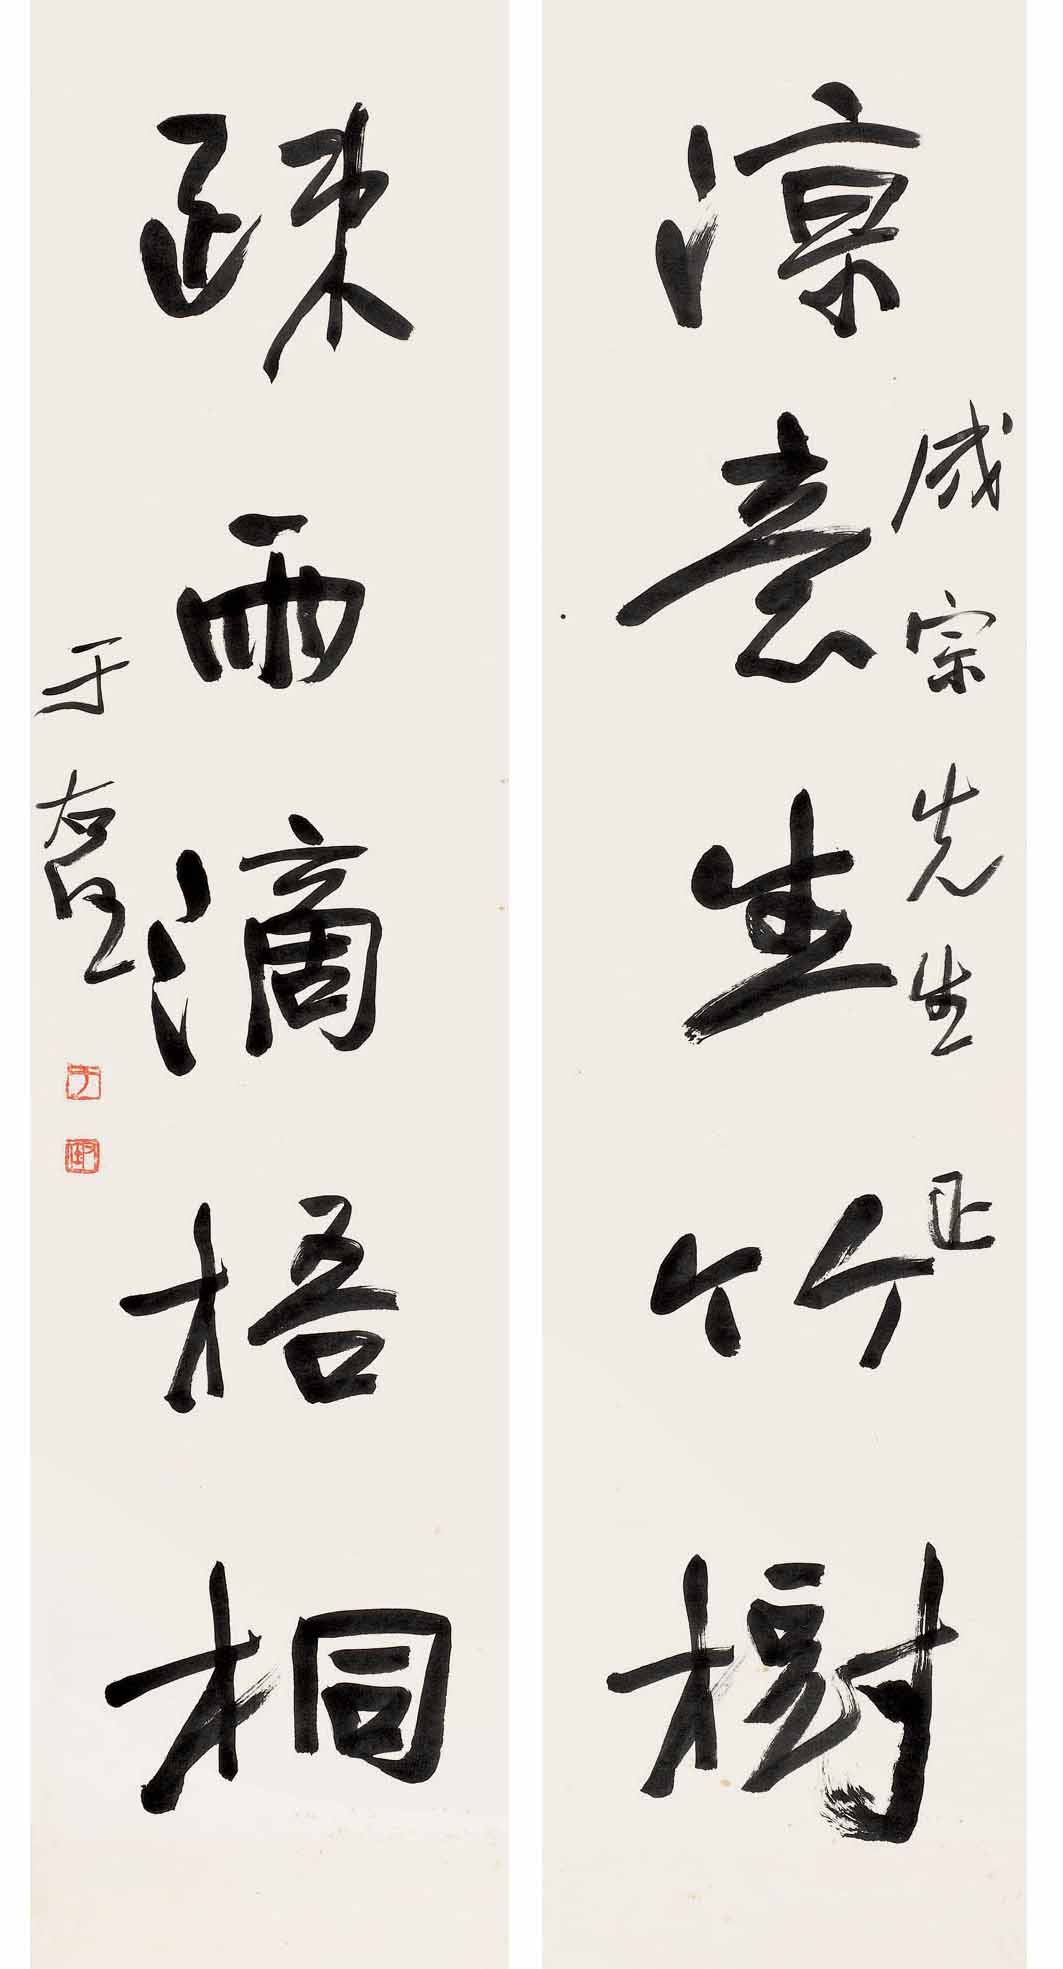 成宗先生正
涼意生竹樹
疎雨滴梧桐
于右任